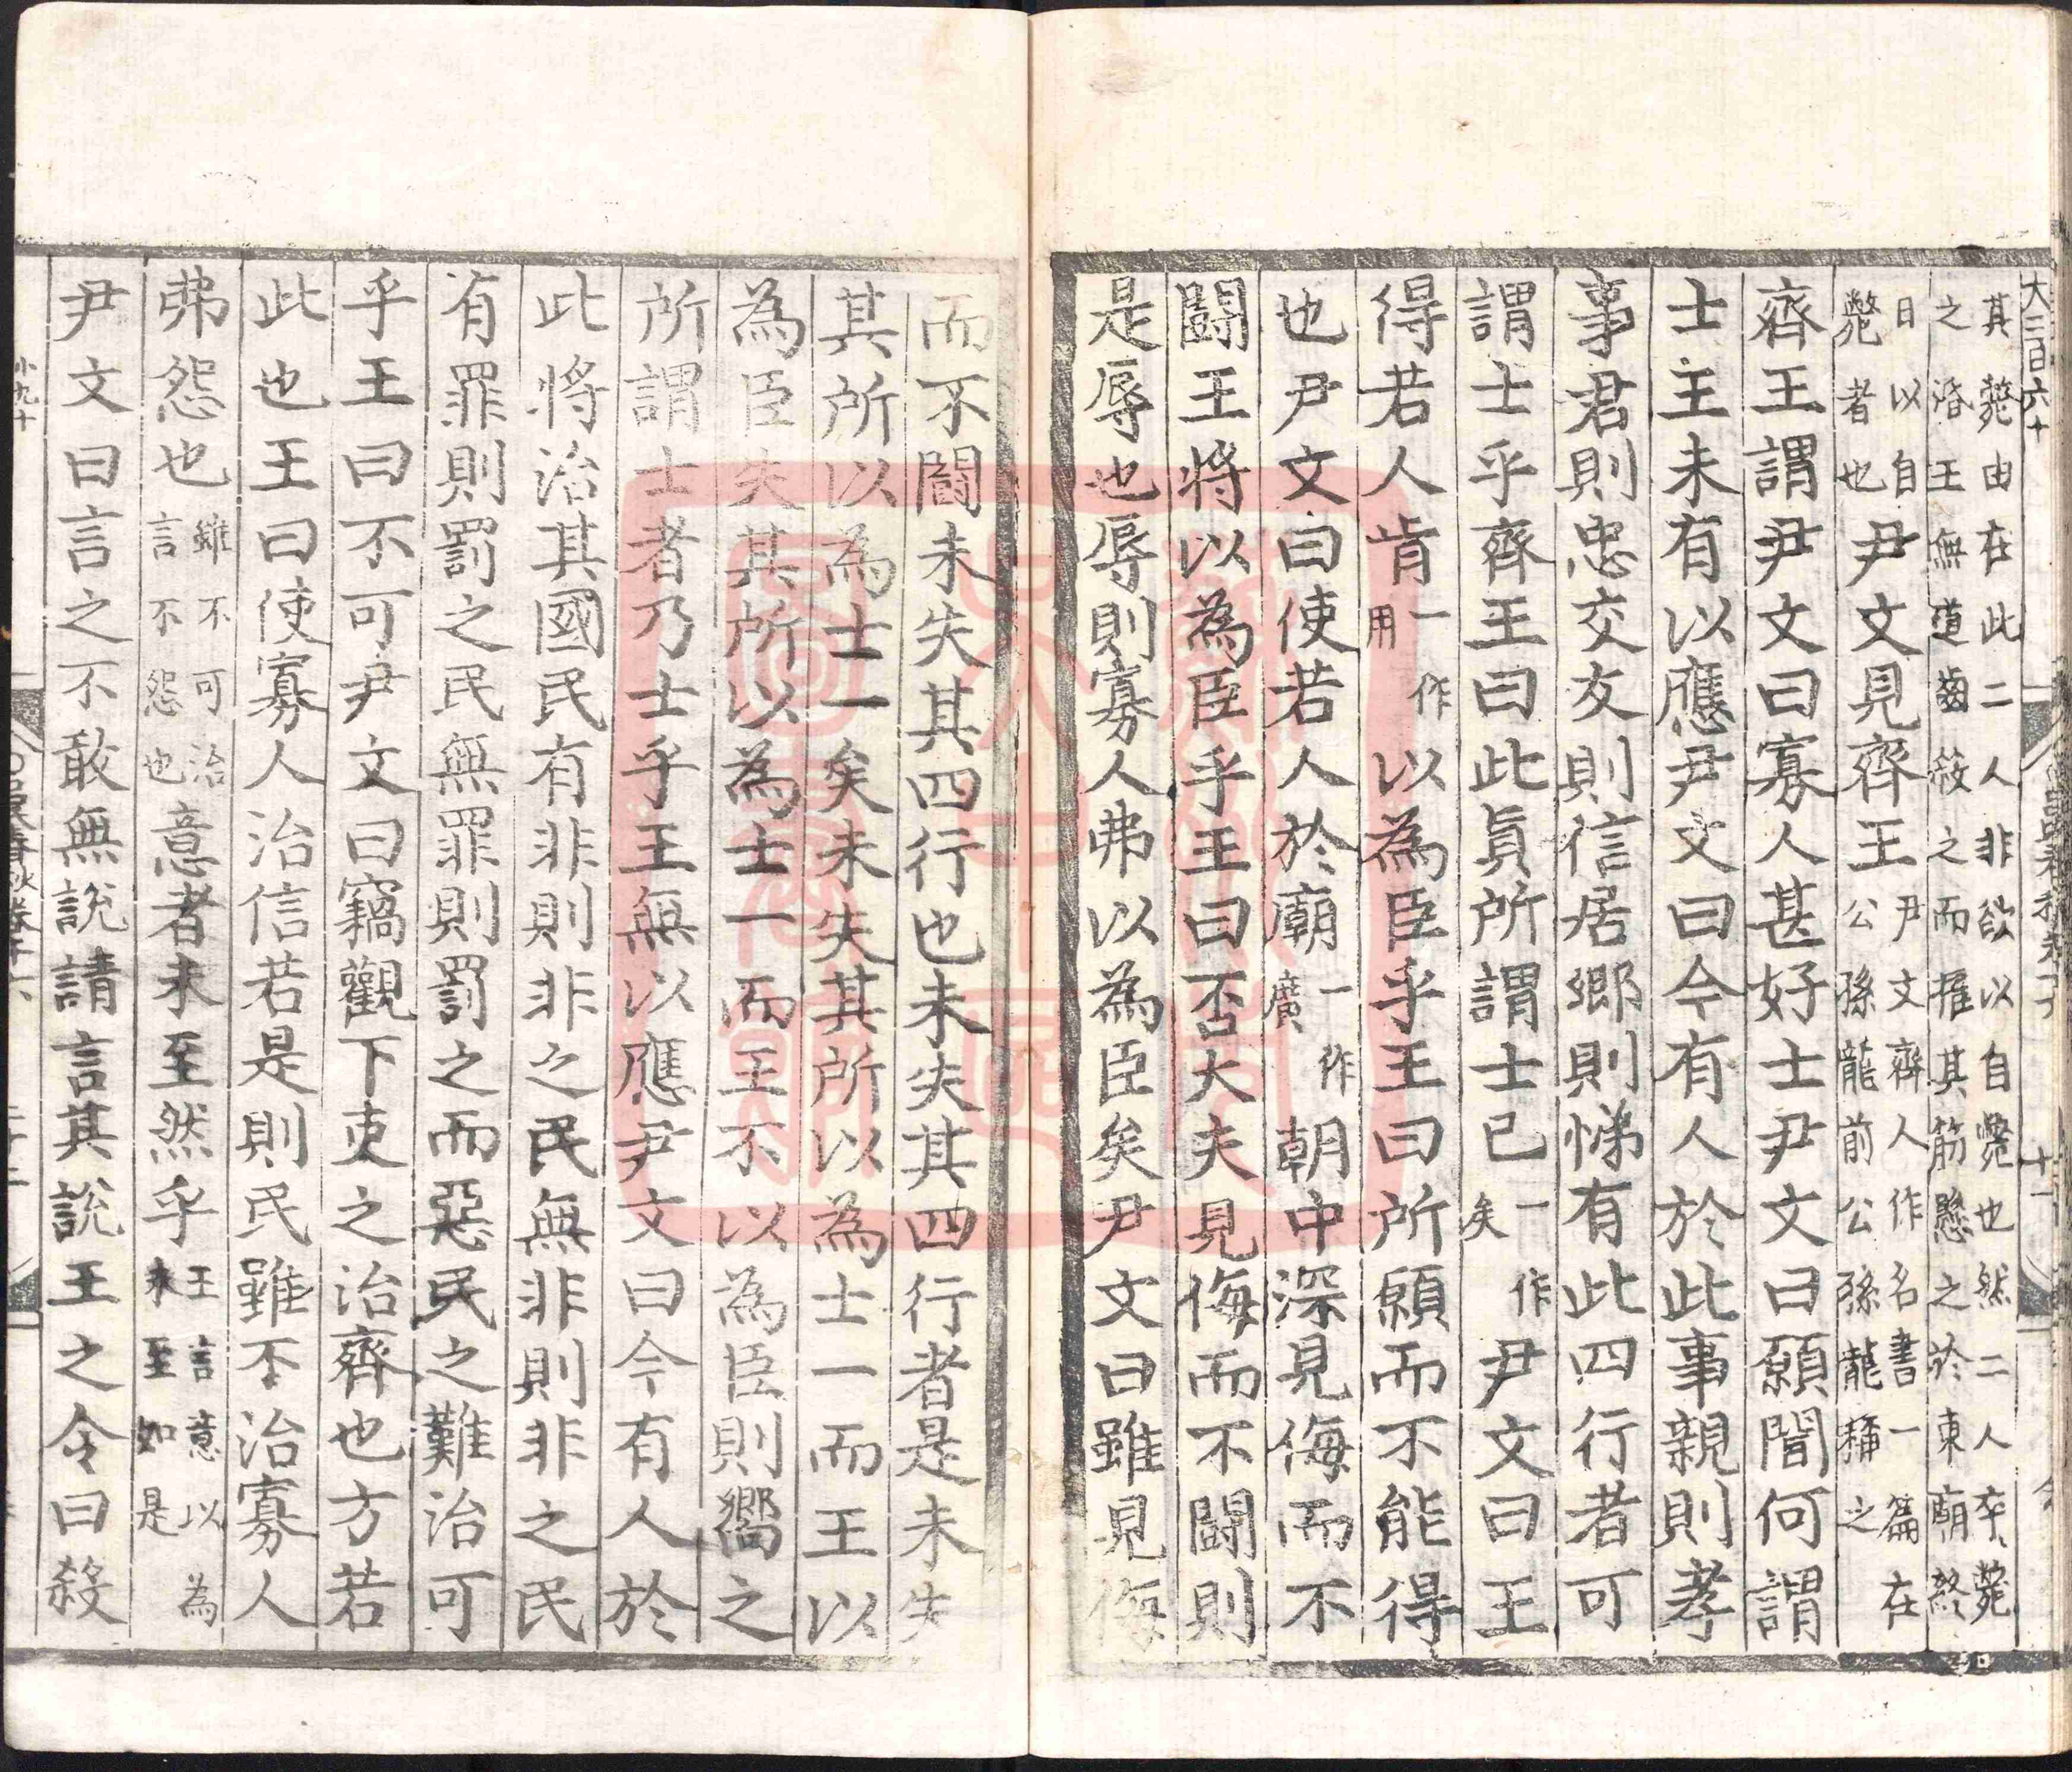 大三百六十
其斃由在此二人非欲以自斃也然二人卒斃
之湣王無道齒殺之而擢其筋懸之於東廟終
日以自
斃者也
尹文見齊王
尹文齊人作名書一篇在
公孫龍前公孫龍稱之
齊王謂尹文曰寡人甚好士尹文曰願聞何謂
士王未有以應尹文曰今有人於此事親則孝
事君則忠交友則信居鄉則悌有此四行者可
謂士乎齊王曰此真所謂士已一作矣尹文曰王
得若人肯一作用以為臣乎王曰所願而不能得
也尹文曰使若人於廟一作廣朝中深見侮而不
鬭王將以為臣乎王曰否大夫見侮而不鬭則
是辱也辱則寡人弗以為臣矣尹文曰雖見侮
而不鬭未失其四行也未失其四行者是未失
其所以為士一矣未失其所以為士一而王以
為臣失其所以為士一而王不以為臣則嚮之
所謂士者乃士乎王無以應尹文曰今有人於
此將治其國民有非則非之民無非則非之民
有罪則罰之民無罪則罰之而惡民之難治可
乎王曰不可尹文曰竊觀下吏之治齊也方若
此也王曰使寡人治信若是則民雖不治寡人
弗怨也雖不可治言不怨也意者未至然乎王言意以為未至如是
尹文曰言之不敢無說請言其說王之令曰殺
小九十